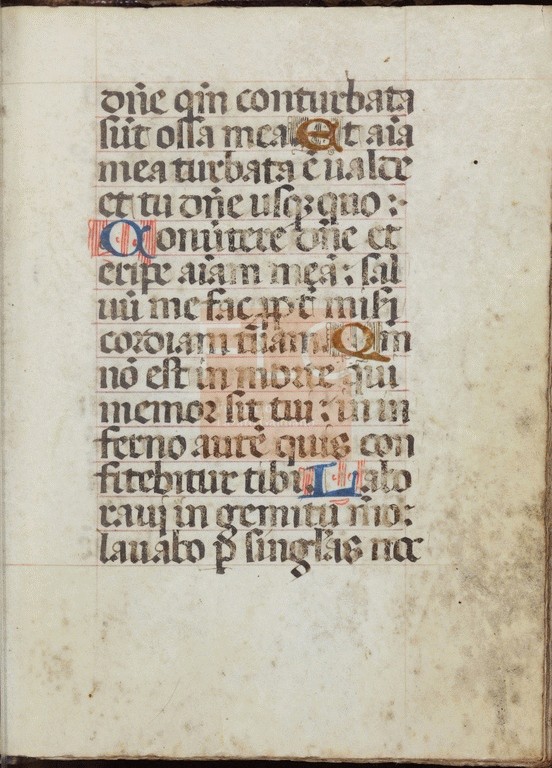 dñe qm̃ conturbata
sũt ossa mea Et aĩa
mea turbata ẽ ualde
et tu dñe usqꝫ quo :
Conũtere dñe et
eripe aĩam meã : sal
uũ me fac ꝓpt̃ misi
cordiam tũam Qm̃
nõ est in morte qui
memor sit tui : in in
ferno autẽ quis con
fitebitur tibi Labo
raui in gemitu m̃o :
lauabo p̱ singlas noc